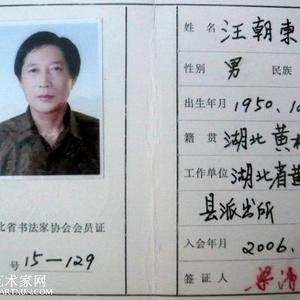 姓名 汪朝东
性别 男 民族
出生年月 1950.10
籍贯 湖北黄
工作单位 湖北省黄
县派出所
入会年月 2006.
签证人
北省书法家协会会员证
号 15-129
艺术家网
ARTXUN.COM